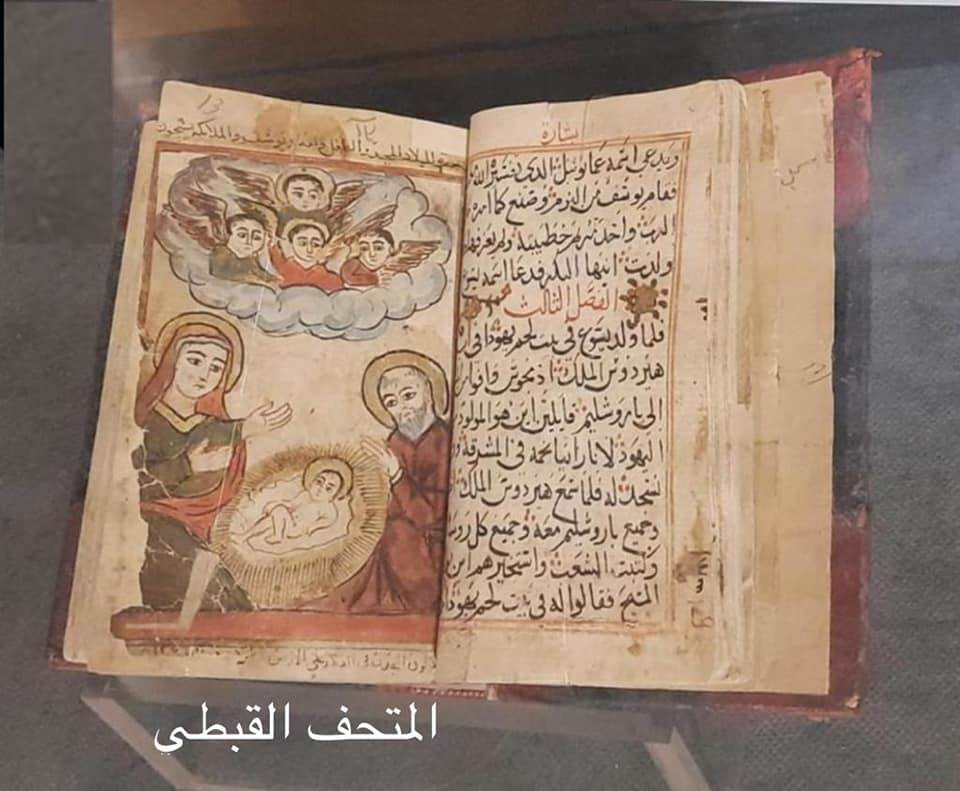 بشارة
ويدعى اسمه عمانويل الذى تفسيره الله
فقام يوسف من النوم وصنع كما امره
الرب واخذ مريم خطيبته ولم يعرفها
ولدت ابنها البكر فدعا اسمه
الفصل الثالث
فلما ولد يسوع فى بيت لحم يهودا فى
هيردوس الملك اذ مجوس وافوا
الى ياروشليم قايلين اين هو المولود
اليهود لانا راينا نجمه فى المشرق
لنسجد له فلما سمع هيردوس الملك
وجميع ياروشليم معه وجميع كل
وكتبة الشعب واستخبرهم اين
المسيح فقالوا له فى بيت لحم يهودا
13
الميلاد المجيد والملايكة يسجدون
المتحف القبطي